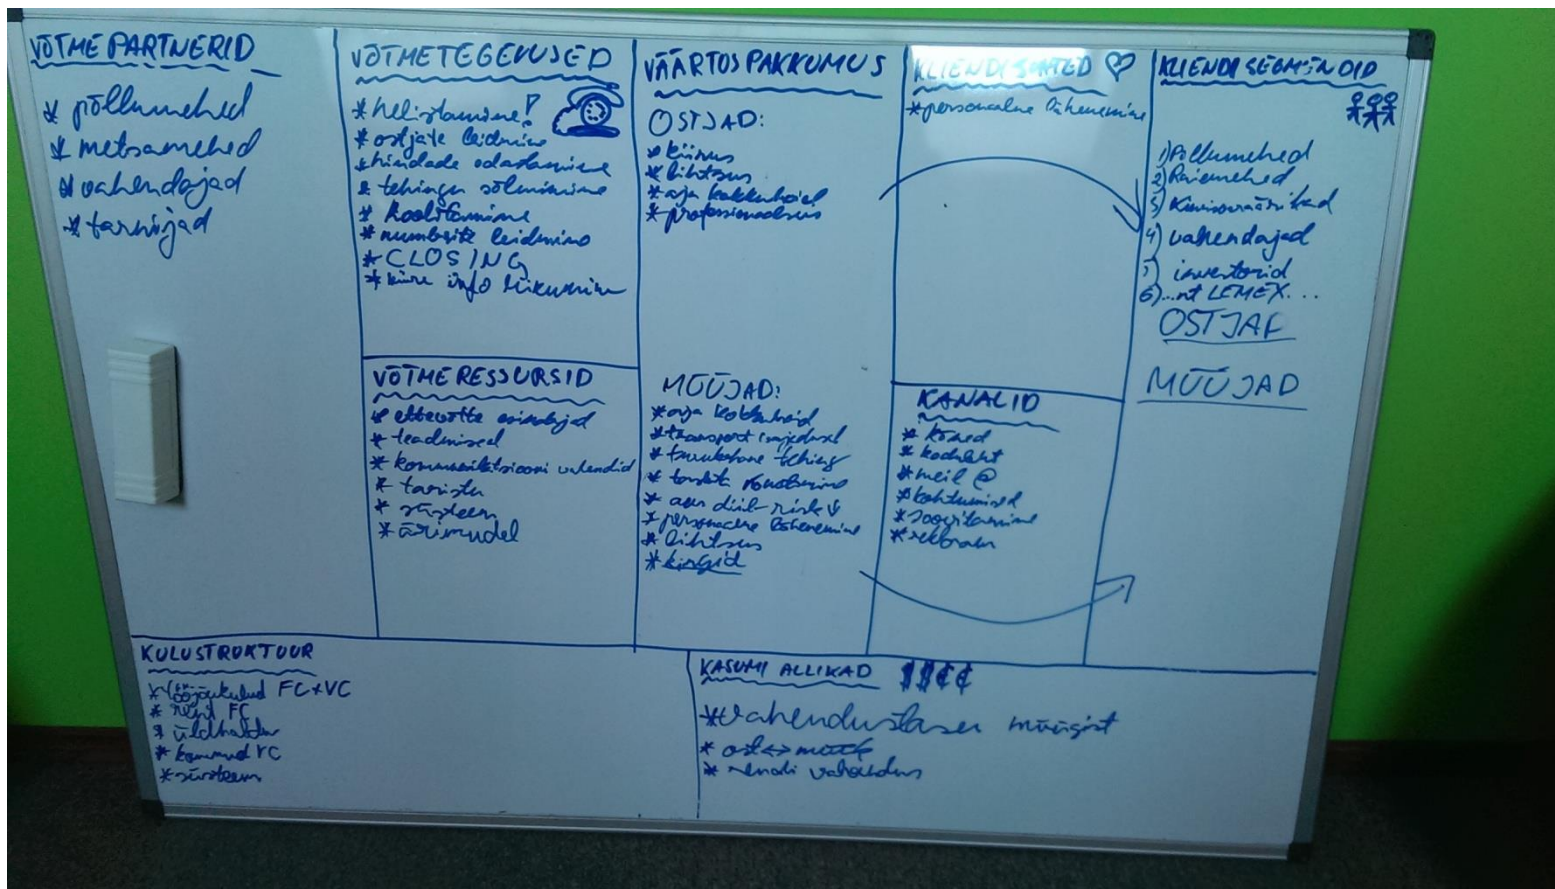 VÕTMEPARTNERID
* põllumehed
* metsamehed
* vahendajad
* tarnijad
VÕTMETEGEVUSED
* helistamine!
* ostjate leidmine
* hindade edastamine
* tehingu sõlmimine
* koolitamine
* numbrite leidmine
* CLOSING
* kiire info liikumine
VÕTMERESSURSID
* ettevõtte esindajad
* teadmised
* kommunikatsiooni vahendid
* taristu
* süsteem
* ärimudel
VÄÄRTUSPAKKUMUS
OSTJAD:
* kiirus
* lihtsus
* aja kokkuhoid
* professionaalsus
MÜÜJAD:
* aja kokkuhoid
* transport
* turvaline tehing
* risk ↓
* personaalne lähenemine
* lihtsus
KLIENDISUHTED
* personaalne lähenemine
KANALID
* kõned
* koduleht
* meil @
* kohtumised
* soovitamine
* reklaam
KLIENDISEGMENDID
1) Põllumehed
2)
3) Kinnisvaraärikad
4) vahendajad
5) investorid
6) ...nt LEMEX...
OSTJAD
MÜÜJAD
KULUSTRUKTUUR
* tööjõukulud FC+VC
* rent FC
* üldhaldus
* VC
* süsteem
KASUMI ALLIKAD $$€€
* vahendustasu müügist
* ost <-> müük
* rendi vahendus